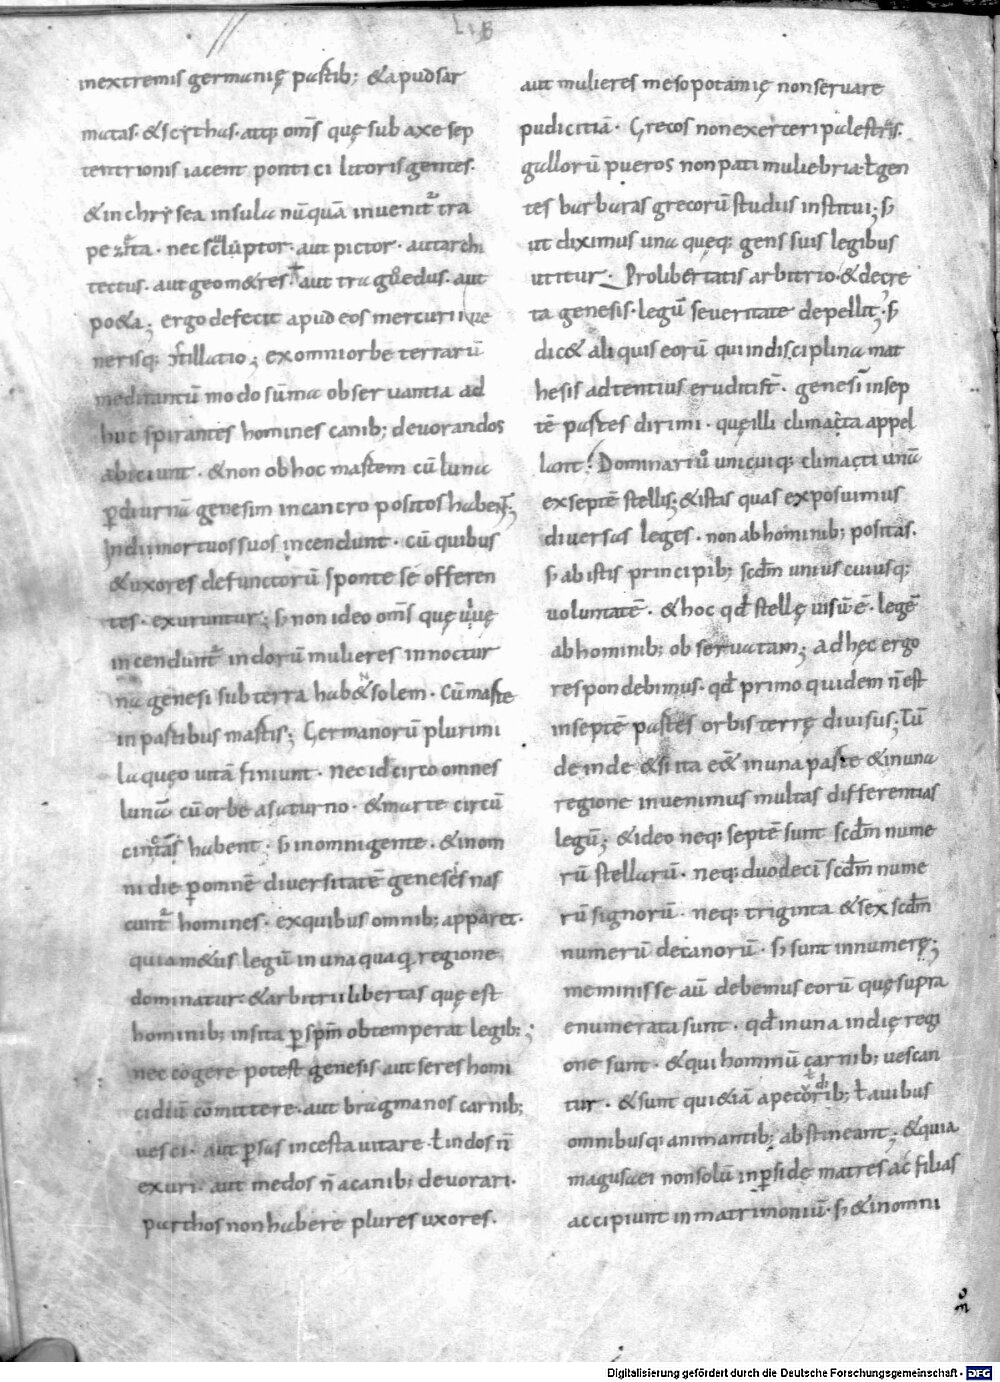 LIB
inextremis germanię partib; &apudsar
matas· &scythas· atq; om̄s quę sub axe sep
tentrionis iacent ponti ci litoris gentes·
&inchrysea insula nūquā inuenit᷑ tra
pe zita· nec sculptor· aut pictor· autarchi
tectus· aut geom&res· aut tra goedus· aut
po&a; ergo defecit apud eos mercurii ue
nerisq; stillatio; ex omni orbe terrarū
meditantū modo sūma obser uantia ad
huc spirantes homines canib; deuorandos
abiciunt· &non ob hoc martem cū luna
ꝑdiurnā genesim in cancro positos habent;
Indi mortuos suos incendunt· cū quibus
&uxores defunctorū sponte se offeren
tes· exuruntur; sꝫ non ideo om̄s quę uiuę
incendunt᷑ indorū mulieres in noctur
na genesi sub terra hab& solem· Cū marte
in partibus martis; Germanorū plurimi
laqueo uitā finiunt· nec idcirco omnes
lunā cū orbe a saturno· &marte circū
cinctās habent· sꝫ in omni gente· &in om
ni die ꝑ omnē diuersitatē geneseis nas
cunt᷑ homines· ex quibus omnib; apparet·
quia m&us legū in una quaq; regione
dominatur &arbitrii libertas quę est
hominib; insita ꝑ spm̄ obtemperat legib;
nec cogere potest genesis aut seres homi
cidiū cōmittere· aut bragmanos carnib;
uesci· aut ꝑsas incesta uitare ł indos n̄
exuri· aut medos n̄ a canib; deuorari·
parthos non habere plures uxores·
aut mulieres mesopotamię non seruare
pudicitiā· Grecos non exerceri palestris·
gallorū pueros non pati muliebria· ł gen
tes barbaras grecorū studiis institui; sꝫ
ut diximus una quęq; gens suis legibus
utitur· Pro libertatis arbitrio· &decre
ta genesis· legū seueritate depellit; sꝫ
dic& aliquis eorū qui in disciplina mat
hesis adtentius eruditi st̄· genesī in sep
tē partes dirimi· quę illi climacta appel
lant! Dominari ů unicuiq; climacti unā
ex septē stellis; &istas quas exposuimus
diuersas leges· non ab hominib; positas·
sꝫ ab istis principib; scd̄m unius cuiusq;
uoluntatē· &hoc qd̄ stellę uisū ē· legē
ab hominib; obseruatam; ad hęc ergo
respondebimus· qd̄ primo quidem n̄ est
in septē partes orbis terrę diuisus; Tū
deinde &si ita e&̄ in una parte &in una
regione inuenimus multas differentias
legū; &ideo neq; septē sunt scd̄m nume
rū stellarū· neq; duodeci scd̄m nume
rū signorū· neq; triginta &sex scd̄m
numerū decanorū· sꝫ sunt innumerę;
meminisse aū debemus eorū quę supra
enumerata sunt· qd̄ in una indię regi
one sunt· &qui hominū carnib; uescan
tur· &sunt qui &iā a pecorib; ł auibus
omnibusq; animantib; abstineant; &quia
magusaei non solū in ꝑside matres ac filias
accipiunt in matrimoniū· sꝫ &in omni
Digitalisierung gefördert durch die Deutsche Forschungsgemeinschaft · DFG